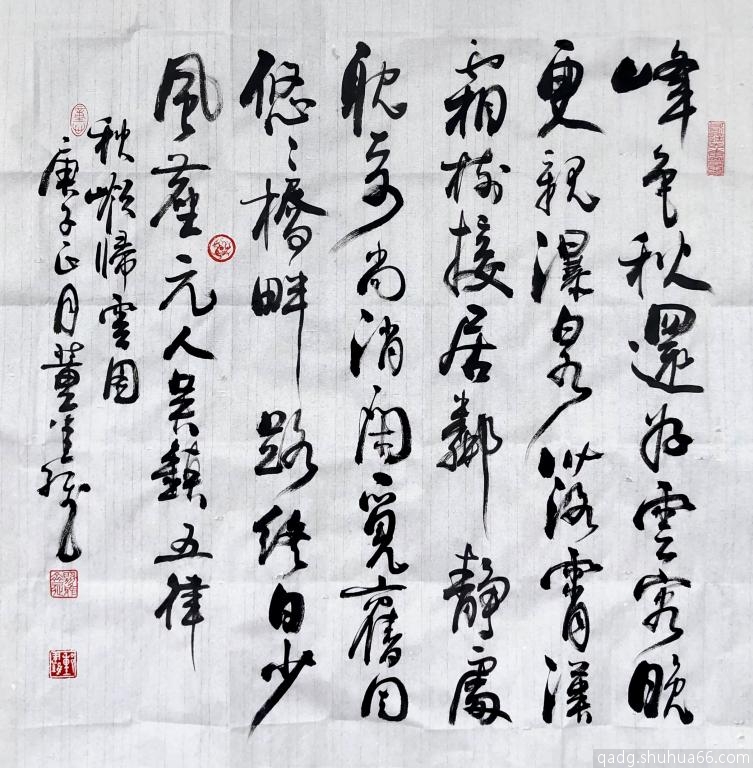 峰色秋還好雲容晚
更親瀑泉落霄漢
霜樹接居鄰靜處
耽奇尚消閑覓舊因
悠〻橋畔路終日少
風塵元人吳鎮五律
秋嶺歸雲圖
庚子正月董
qadg.shuhua66.com